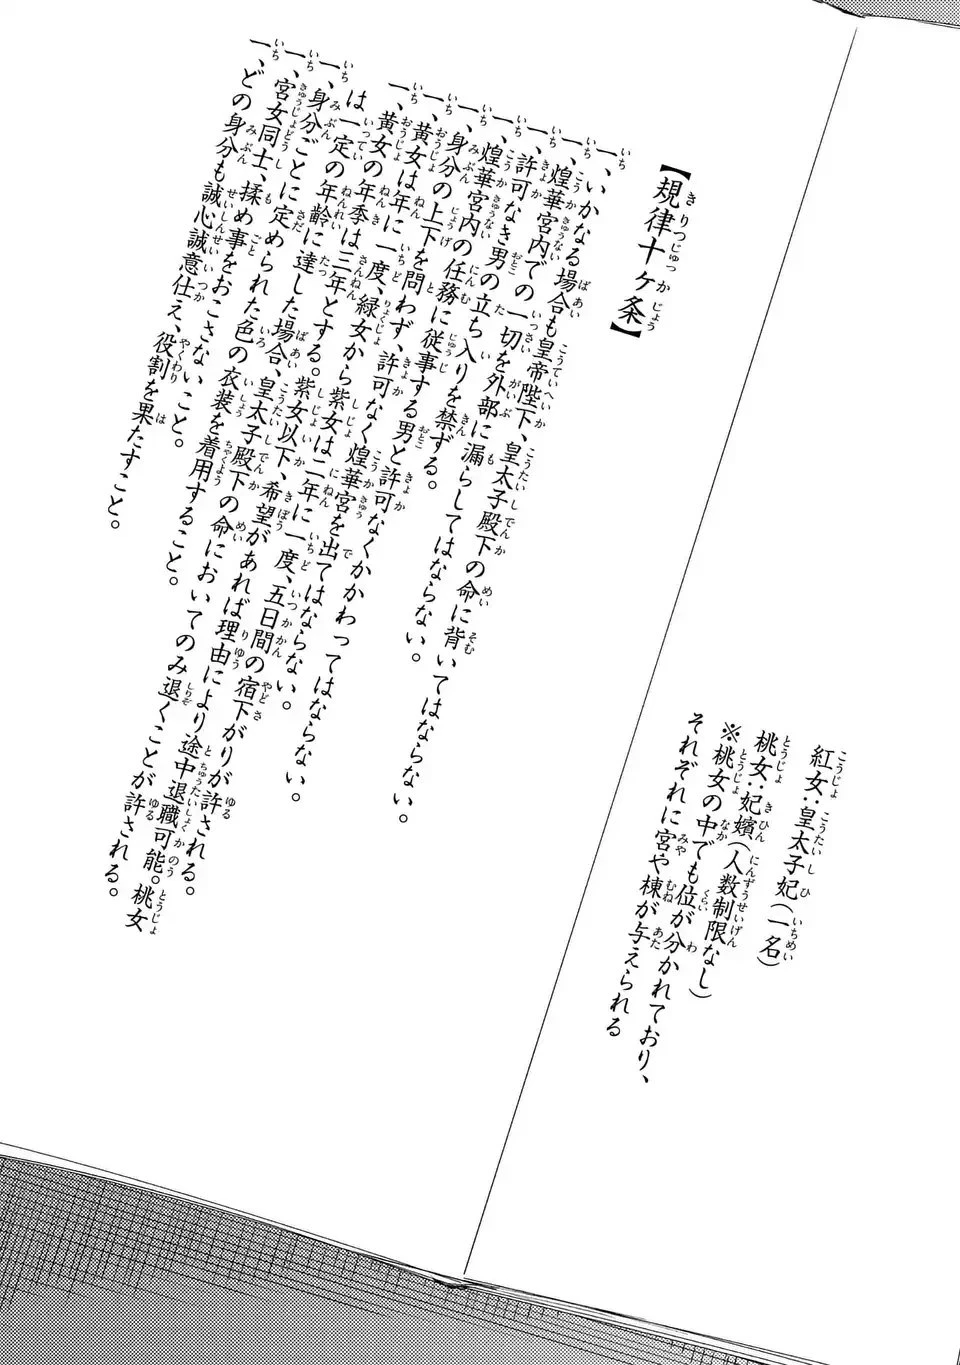 紅女:皇太子妃(一名)
桃女:妃嬪(人数制限なし)
※桃女の中でも位が分かれており、
それぞれに宮や棟が与えられる
【規律十ヶ条】
一、いかなる場合も皇帝陛下、皇太子殿下の命に背いてはならない。
一、煌華宮内での一切を外部に漏らしてはならない。
一、許可なき男の立ち入りを禁ずる。
一、煌華宮内の任務に従事する男と許可なくかかわってはならない。
一、身分の上下を問わず、許可なく煌華宮を出てはならない。
一、黄女は年に一度、緑女から紫女は二年に一度、五日間の宿下がりが許される。
一、黄女の年季は三年とする。紫女以下、希望があれば理由により途中退職可能。桃女
は一定の年齢に達した場合、皇太子殿下の命においてのみ退くことが許される。
一、身分ごとに定められた色の衣装を着用すること。
一、宮女同士、揉め事をおこさないこと。
一、どの身分も誠心誠意仕え、役割を果たすこと。